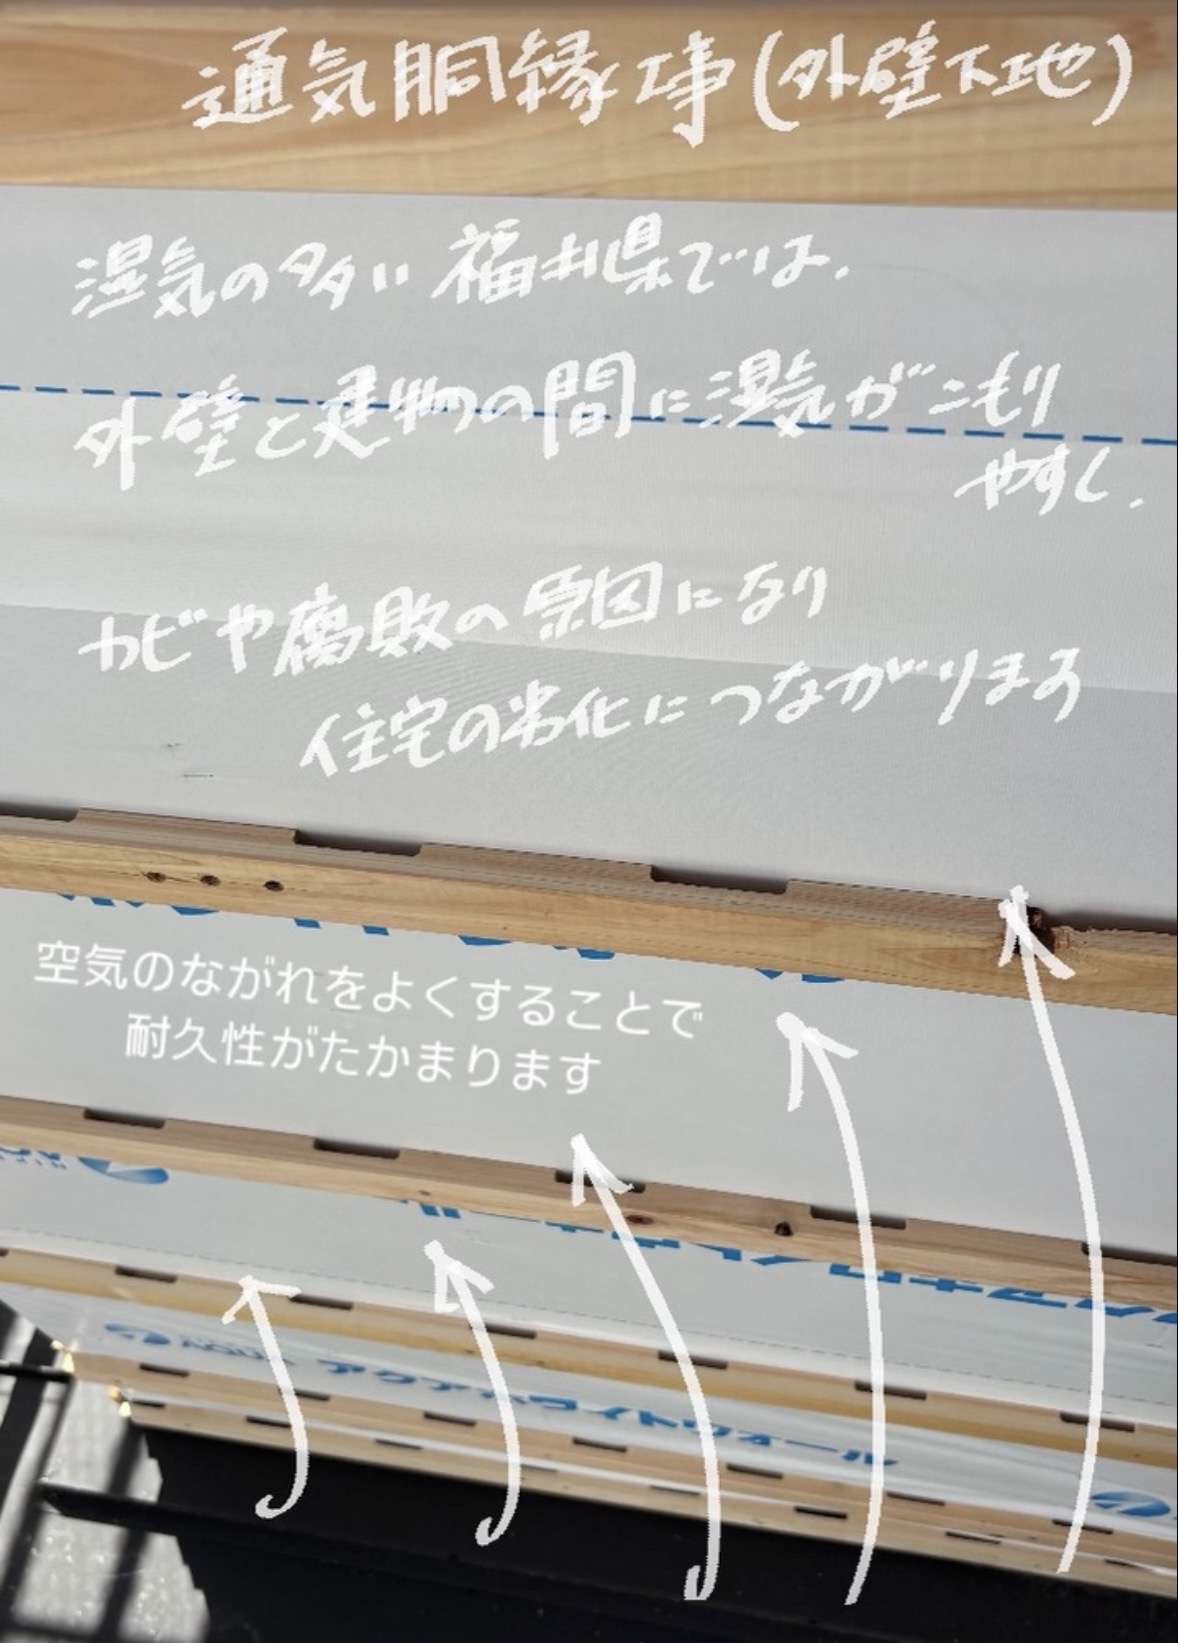 通気胴縁工事(外壁下地)
湿気の多い福井県では、
外壁と建物の間に湿気がこもり
やすく、
カビや腐敗の原因になり
住宅の劣化につながります
空気のながれをよくすることで
耐久性がたかまります
アクアホワイトウォール